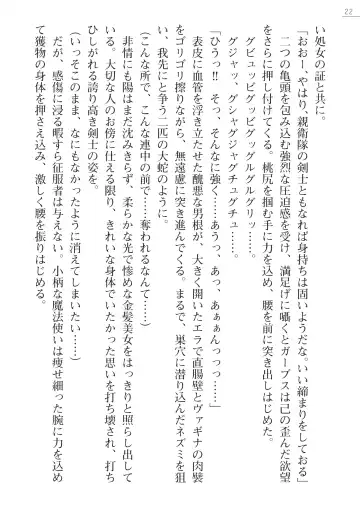 22
い処女の証と共に。
「おおー、やはり、親衛隊の剣士ともなれば身持ちは固いようだな。いい締まりをしておる」
二つの亀頭を包み込む強烈な圧迫感を受け、満足げに囁くとガーブスは己の歪んだ欲望
をさらに押し付けてくる。桃尻を掴む手に力を込め、腰を前に突き出しはじめる。
グビュッビグッビグッグルグルグリッ……。
グジャッ、グジャグジャグチュグチュ……。
「ひうっ‼ そっ、そんなに強く……あうっ、あっ、あぁぁんっっっ……」
表皮に血管を浮き立たせた醜悪な男根が、大きく開いたエラで直腸壁とヴァギナの肉襞
をゴリゴリ擦りながら、無遠慮に突き進んでくる。まるで、巣穴に潜り込んだネズミを狙
い、我先にと争う二匹の大蛇のように。
（こんな所で、こんな連中の前で……奪われるなんて――）
非情にも陽はまだ沈みきらず、柔らかな光で惨めな金髪美女をはっきりと照らし出して
いる。大切な人のお傍に仕える限り、きれいな身体でいたかった思いを打ち壊され、打ち
ひしがれる誇り高き剣士の姿を。
（いっそこのまま、なにもなかったように消えてしまいたい……）
だが、感傷に浸る暇すら征服者は与えてくれない。小柄な魔法使いは痩せ細った腕に力を込め
て獲物の身体を押さえ込み、激しく腰を振りはじめる。